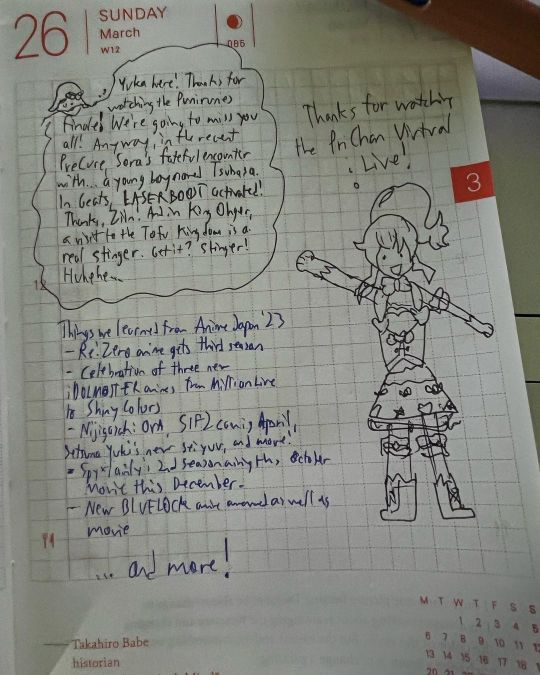 26
SUNDAY
March
W12
085
Yuka here! Thanks for
watching the Punirunes
Finale! We're going to miss you
all! Anyway, in the recent
PreCure, Sora's fateful encounter
with... a young boy named Tsubasa.
In Geats, LASER BOOST activated!
Thanks, Ziin! And in King Ohger,
a visit to the Tofu Kingdom is a
real stinger. Get it? Stinger!
Huhehe...
Thanks for watching
the PriChan Virtual
Live!
3
12
Things we learned from Anime Japan '23
- Re:Zero anime gets third season
- Celebration of three new
iDOLM@STER animes from Million Live
to Shiny Colors
- Nijigaschi OVA, SIF2 coming April,
Setsuna Yuki's new seiyuu, and more!
- Spy x Family's 2nd season airing this October
Movie this December.
- New BLUELOCK anime announced as well as
movie
... and more!
Takahiro Babe
historian
M T W T F S S
1 2 3 4 5
6 7 8 9 10 11
13 14 15 16 17 18
20 21